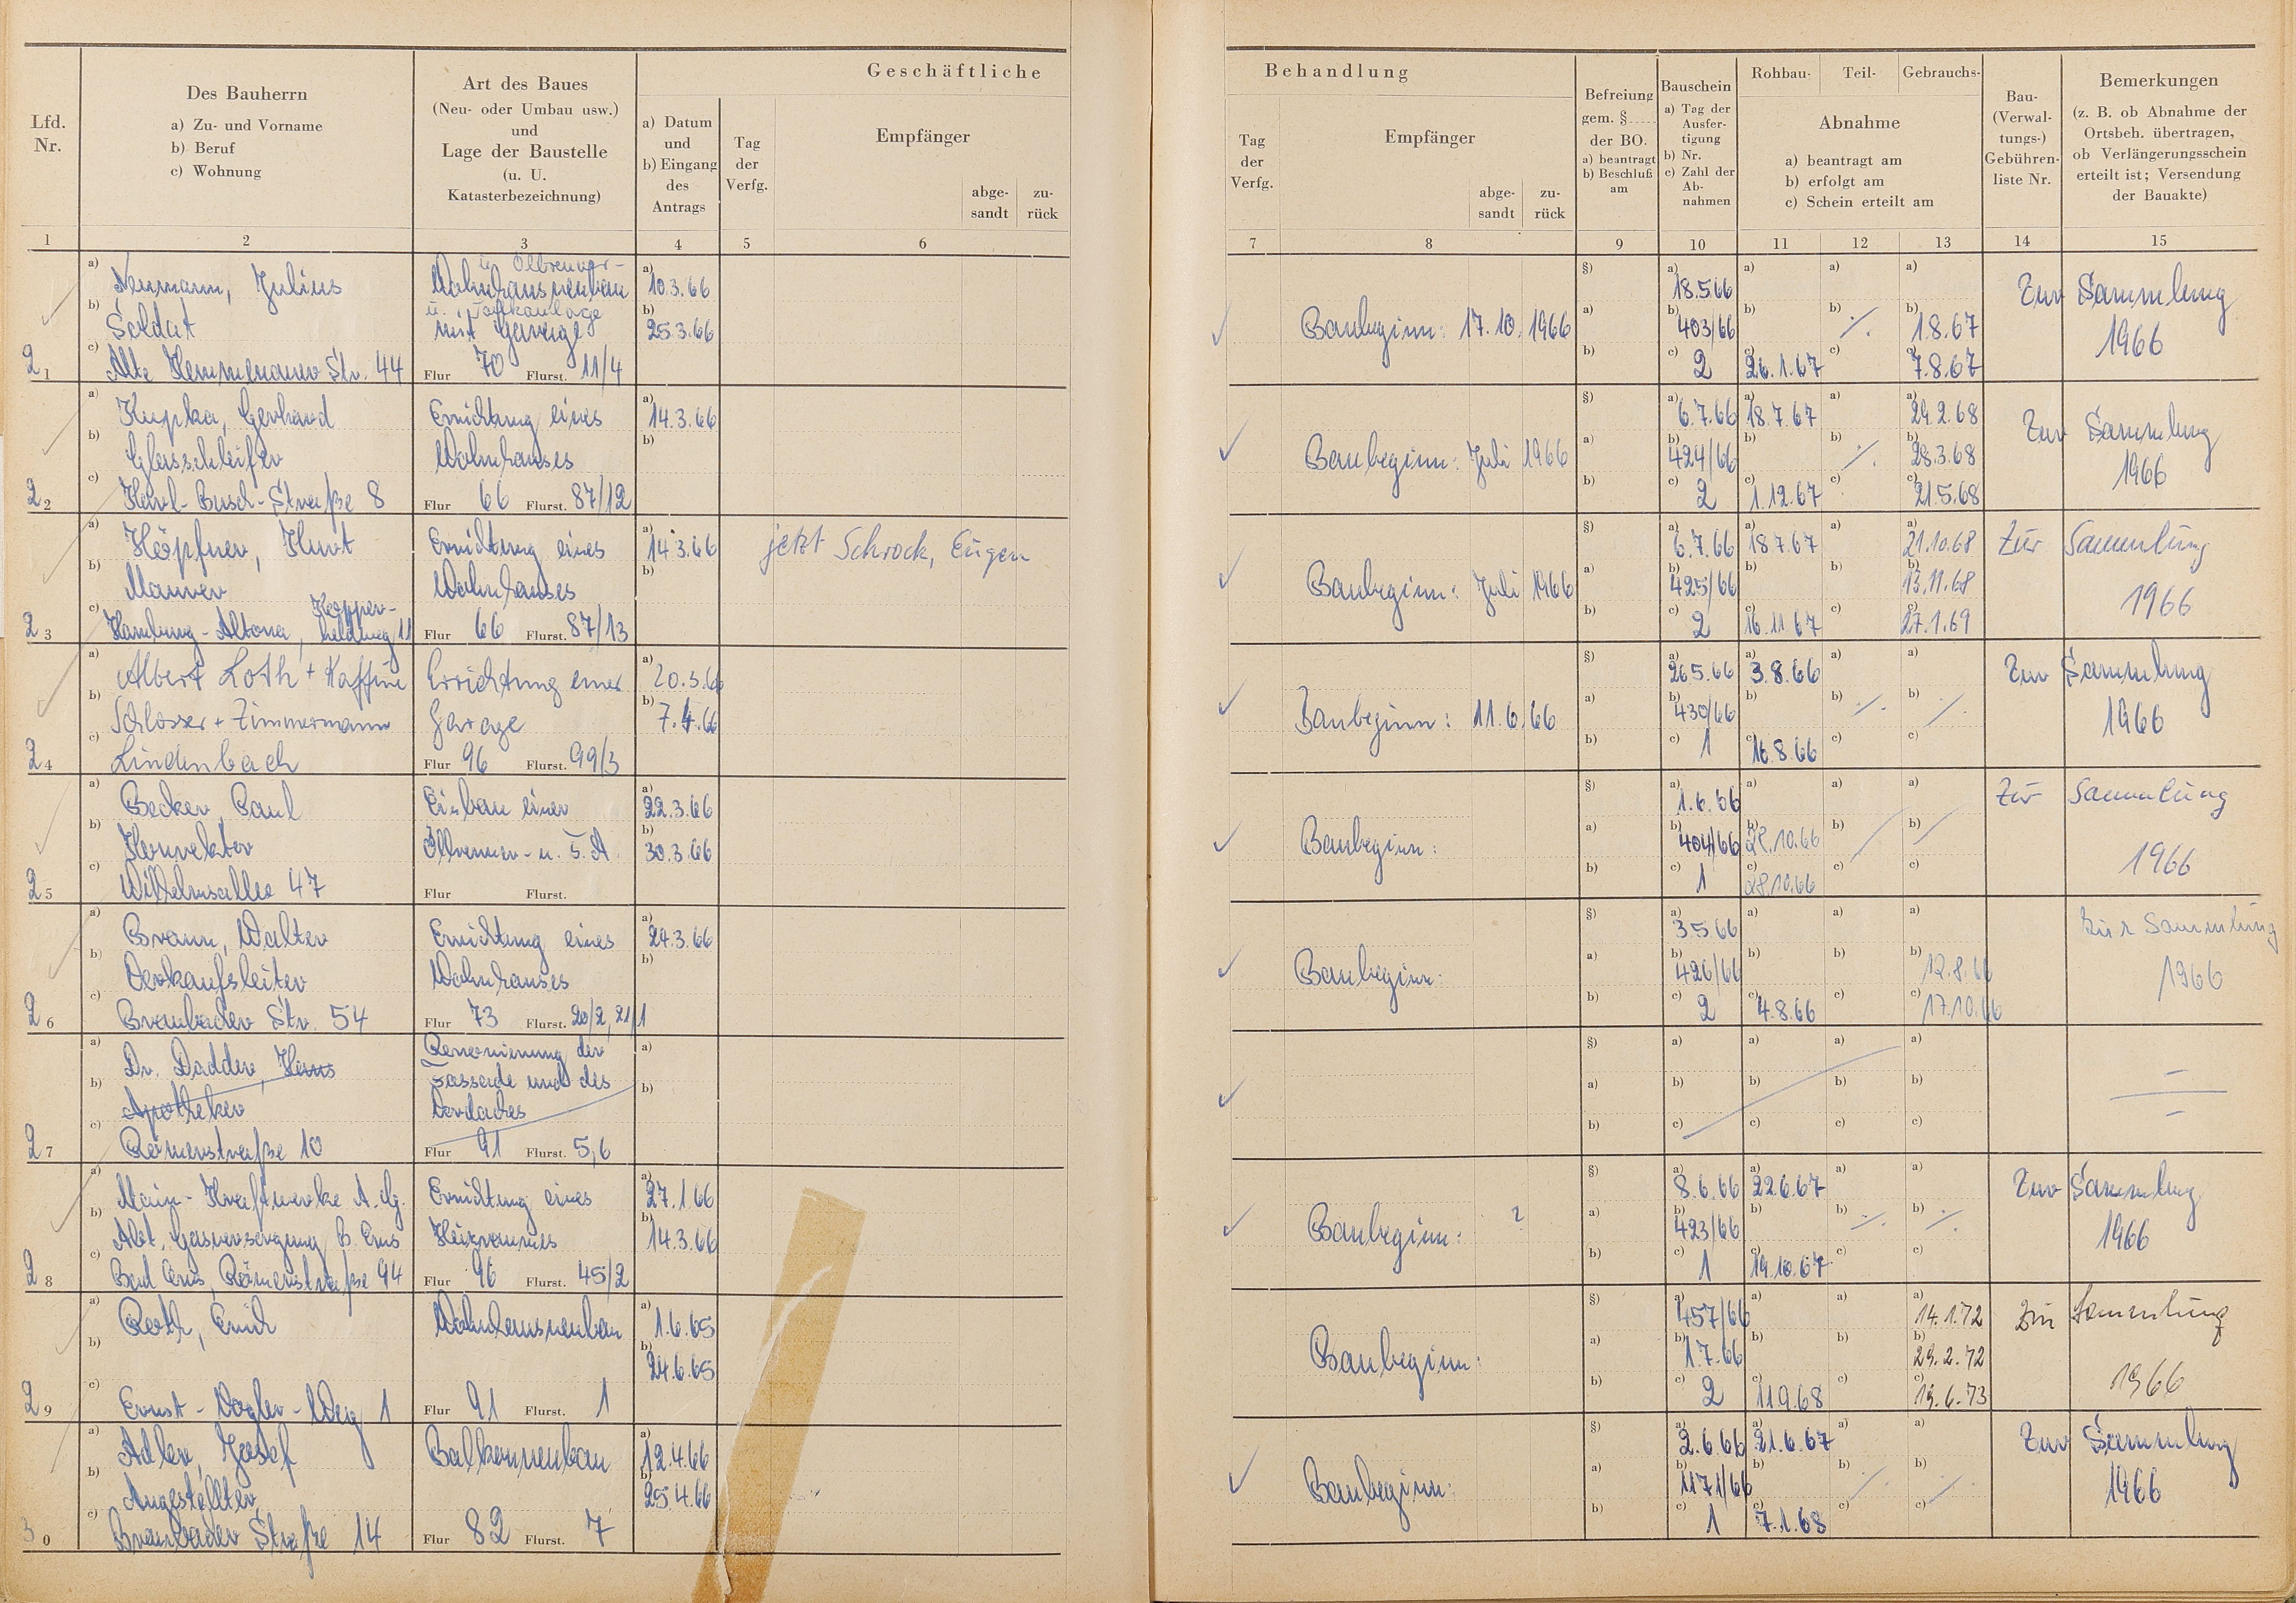 Geschäftliche
Behandlung
Lfd.
Nr.
Des Bauherrn
a) Zu- und Vorname
b) Beruf
c) Wohnung
Art des Baues
(Neu- oder Umbau usw.)
und
Lage der Baustelle
(u. U.
Katasterbezeichnung)
a) Datum
und
b) Eingang
des
Antrags
Tag
der
Verfg.
Empfänger
abge-
sandt
zu-
rück
Tag
der
Verfg.
Empfänger
abge-
sandt
zu-
rück
Befreiung
gem. §
der BO.
a) beantragt
b) Beschluß
am
Bauschein
a) Tag der
Ausfer-
tigung
b) Nr.
c) Zahl der
Ab-
nahmen
Rohbau- Teil- Gebrauchs-
Abnahme
a) beantragt am
b) erfolgt am
c) Schein erteilt am
Bau-
(Verwal-
tungs-)
Gebühren-
liste Nr.
Bemerkungen
(z. B. ob Abnahme der
Ortsbeh. übertragen,
ob Verlängerungsschein
erteilt ist; Versendung
der Bauakte)
1 2 3 4 5 6 7 8 9 10 11 12 13 14 15
21
a) Neumann, Julius
b) Soldat
c) Alte Kemmenauer Str. 44
u. Ölbrenner-
Wohnhausneubau
u. Tankanlage
mit Garage
Flur 70 Flurst. 11/4
a) 10.3.66
b) 25.3.66
Baubeginn: 17.10.1966
§)
a)
b)
a) 18.5.66
b) 403/66
c) 2
a)
b)
c) 26.1.67
a)
b) ./.
c)
a)
b) 1.8.67
c) 7.8.67
Zur Sammlung
1966
22
a) Kupka, Gerhard
b) Glasschleifer
c) Karl-Busch-Straße 8
Errichtung eines
Wohnhauses
Flur 66 Flurst. 87/12
a) 14.3.66
b)
Baubeginn: Juli 1966
§)
a)
b)
a) 6.7.66
b) 424/66
c) 2
a) 18.7.67
b)
c) 1.12.67
a)
b) ./.
c)
a) 29.2.68
b) 28.3.68
c) 21.5.68
Zur Sammlung
1966
23
a) Höpfner, Kurt
b) Maurer
c) Hamburg-Altona,
Errichtung eines
Wohnhauses
Flur 66 Flurst. 87/13
a) 14.3.66
b)
jetzt Schrock, Eugen
Baubeginn: Juli 1966
§)
a)
b)
a) 6.7.66
b) 425/66
c) 2
a) 18.7.67
b)
c) 16.11.67
a)
b)
c)
a) 21.10.68
b) 13.11.68
c) 27.1.69
Zur Sammlung
1966
24
a) Albert Loth +
b) Schlosser + Zimmermann
c) Lindenbach
Errichtung einer
Garage
Flur 96 Flurst. 99/3
a) 20.3.66
b) 7.4.66
Baubeginn: 11.6.66
§)
a)
b)
a) 26.5.66
b) 430/66
c) 1
a) 3.8.66
b)
c) 16.8.66
a)
b) ./.
c)
a)
b) ./.
c)
Zur Sammlung
1966
25
a) Becker, Paul
b)
c) Wilhelmsallee 47
Einbau einer
Ölbrenner- u. T. A.
Flur Flurst.
a) 22.3.66
b) 30.3.66
Baubeginn:
§)
a)
b)
a) 1.6.66
b) 404/66
c) 1
a)
b) 28.10.66
c) 28.10.66
a)
b) /
c)
a)
b) /
c)
Zur Sammlung
1966
26
a) Braun, Walter
b) Verkaufsleiter
c) Braubacher Str. 54
Errichtung eines
Wohnhauses
Flur 73 Flurst. 20/2, 21/1
a) 24.3.66
b)
Baubeginn:
§)
a)
b)
a) 3.5.66
b) 426/66
c) 2
a)
b)
c) 4.8.66
a)
b)
c)
a)
b) 12.8.66
c) 17.10.66
Zur Sammlung
1966
27
a) Dr. Dadder, Hans
b) Apotheker
c) Römerstraße 10
Renovierung der
Fassade und des
Vordaches
Flur 91 Flurst. 5,6
a)
b)
§)
a)
b)
a)
b)
c)
a)
b)
c)
a)
b)
c)
a)
b)
c)
28
a) Main-Kraftwerke A.G.
b) Abt. Gasversorgung B. Ems
c) Bad Ems, Römerstraße 94
Errichtung eines
Heizraumes
Flur 96 Flurst. 45/2
a) 27.1.66
b) 14.3.66
Baubeginn: ?
§)
a)
b)
a) 8.6.66
b) 423/66
c) 1
a) 22.6.67
b)
c) 19.10.67
a)
b) ./.
c)
a)
b) ./.
c)
Zur Sammlung
1966
29
a) Roth, Erich
b)
c) Ernst-Vogler-Weg 1
Wohnhausneubau
Flur 91 Flurst. 1
a) 1.6.65
b) 24.6.65
Baubeginn:
§)
a)
b)
a) 457/66
b) 1.7.66
c) 2
a)
b)
c) 11.9.68
a)
b)
c)
a) 14.1.72
b) 29.2.72
c) 19.6.73
Zur Sammlung
1966
30
a) Adler, Josef
b) Angestellter
c) Braubacher Straße 14
Balkonneubau
Flur 82 Flurst. 7
a) 12.4.66
b) 25.4.66
Baubeginn:
§)
a)
b)
a) 2.6.66
b) 1171/66
c) 1
a) 21.6.67
b)
c) 7.1.68
a)
b) ./.
c)
a)
b) ./.
c)
Zur Sammlung
1966